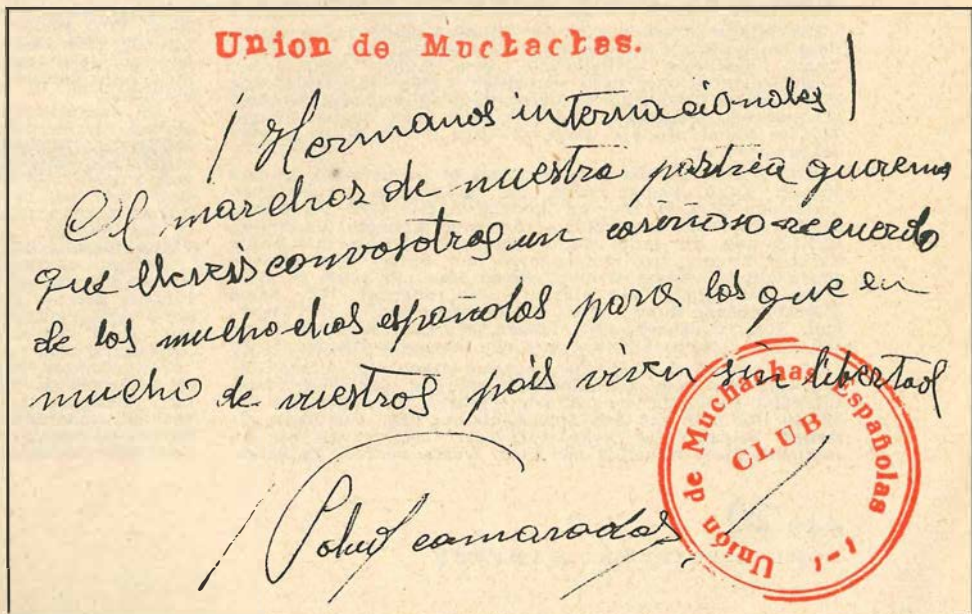 Union de Muchachas.
¡Hermanos internacionales!
Al marchar de nuestra patria queremos
que lleveis con vosotros un cariñoso recuerdo
de las muchachas españolas para las que en
mucho de vuestros pais viven sin libertad
¡Salud camaradas!
Unión de Muchachas Españolas
CLUB
1-1